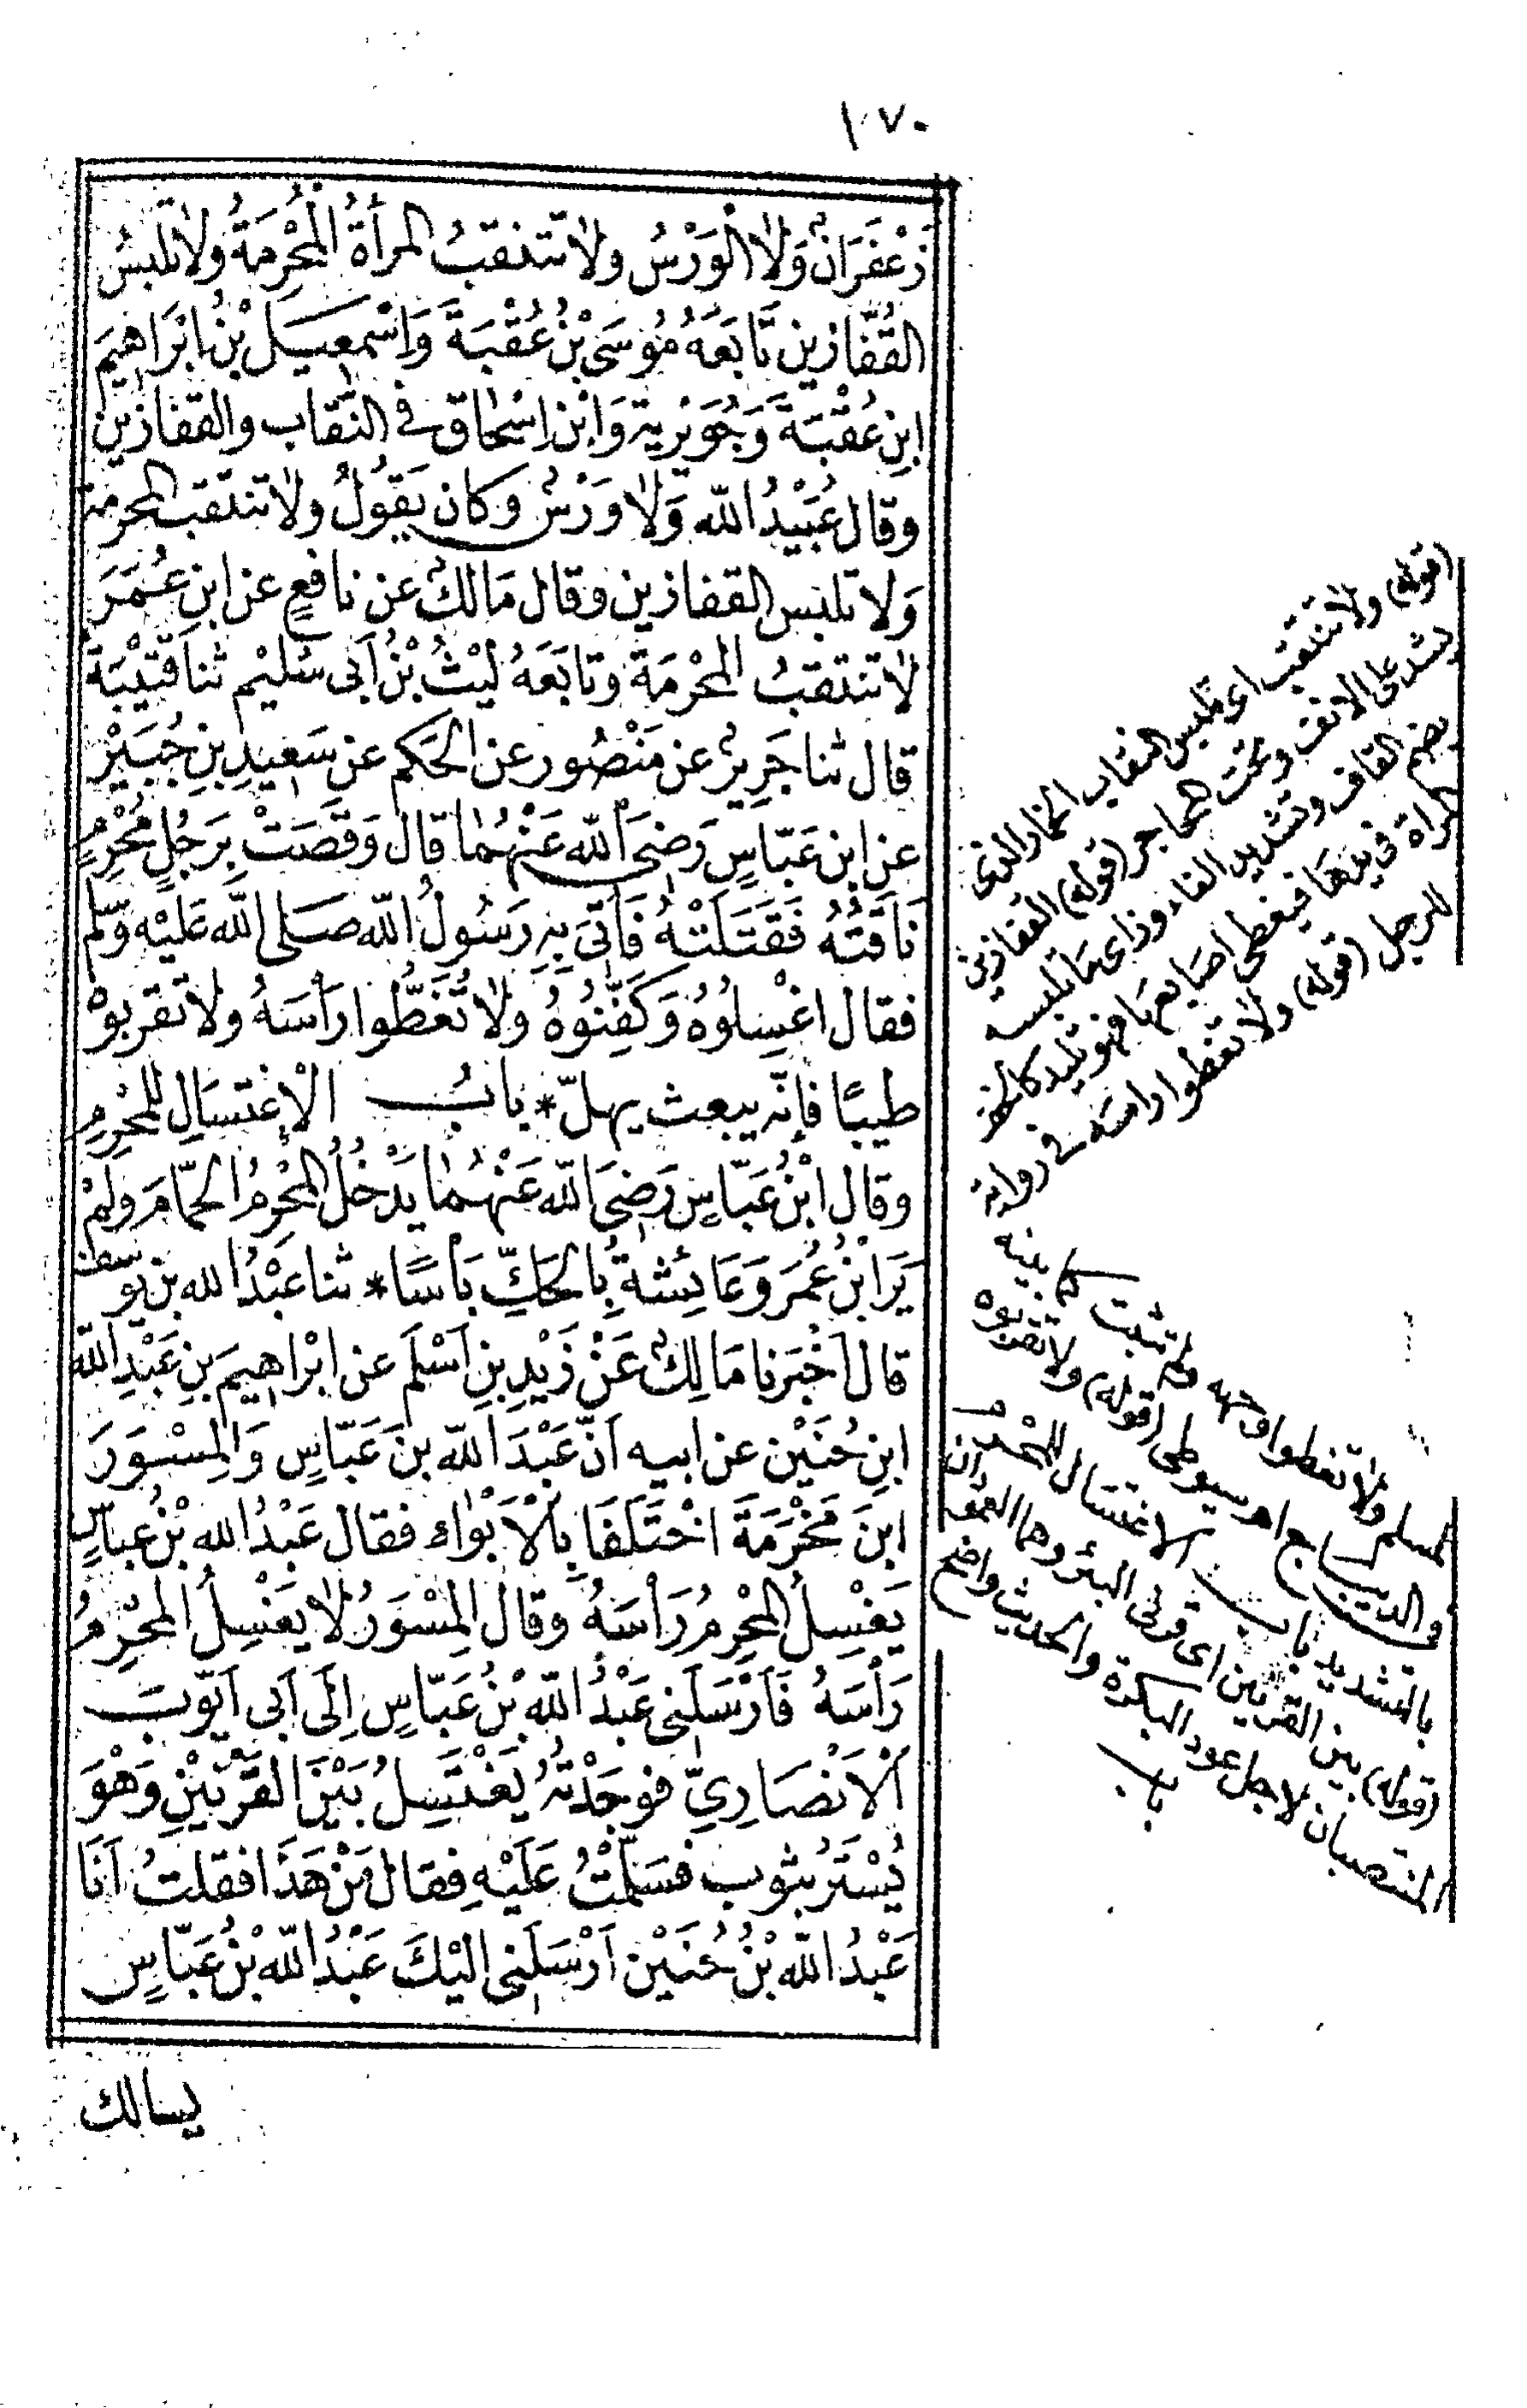 ١٧٠
زَعْفَرَانٌ وَلَا الْوَرْسُ ولا تَتنقبُ المرأةُ الْمُحْرِمَةُ ولا تلبسُ
القُفّازين تَابَعَهُ مُوسَى بْنُ عُقْبَةَ وَاسْمعِيلُ بْنُ ابْرَاهِيمَ
ابنِ عُقْبَةَ وَجُوَيْرِيةُ وَابْنُ اسْحٰاقَ فى النّقاب والقفازين
وقال عُبَيْدُ اللّه وَلَا وَرْسٌ وكان يَقُولُ ولا تنتقب المحرمة
وَلا تلبس القفازين وقال مَالكٌ عن نافعٍ عن ابنِ عُمَرَ
لا تنتقبُ المحْرمَة وتابَعَهُ لَيْثُ بْنُ اَبى سُلَيْم ثنا قُتَيْبَةُ
قال ثنا جَرِيرٌ عن مَنْصُور عن الحَكم عن سَعِيدِ بنِ جُبَيْر
عن ابن عَبّاسٍ رَضىَ اللّه عَنْهُمٰا قال وَقَصَتْ بِرَجُلٍ مُحْرِمٍ
نَاقَتُهُ فَقَتَلَتْهُ فَاُتىَ بِهِ رَسُولُ اللّه صَلى اللّه عَلَيْه وَسّلم
فقال اغْسِلُوهُ وَكَفِّنُوهُ ولا تُغَطُّوا رَأْسَهُ ولا تُقربُوهْ
طيبًا فإنّه يبعث يهلّ * بابُ الْاِغْتسَالِ للمحْرِمِ
وقال ابْنُ عَبّاسٍ رَضِىَ اللّه عَنْهُمٰا يَدْخُلُ المحْرِمُ الحمّامَ ولمْ
يَرَ ابْنُ عُمَرَ وَعَائِشةُ بِالحَكِّ بَأسًا * ثنا عَبْدُ الله بن يوسف
قال اَخْبَرنا مَالِكٌ عَنْ زَيْدِ بنِ اَسْلَمَ عن ابْراهِيمَ بنِ عَبْدِ اللّه
ابنِ حُنَيْن عن ابيه اَنّ عَبْدَ اللّه بنَ عَبّاسٍ وَالْمِسْوَرَ
ابنَ مَخْرَمَةَ اخْتَلَفَا بِالْاَبْوَاءِ فقال عَبْدُ الله بْنُ عبّاسٍ
يَغْسِلُ المحْرِمُ رَأْسَهُ وقال المِسْوَرُ لا يَغْسِلُ المحْرِمُ
رَأْسَهُ فَاَرْسَلَنى عَبْدُ اللّه بْنُ عَبّاسٍ اِلَى اَبى اَيّوبَ
الْاَنْصَارِيِّ فوجَدْتهُ يَغْتَسِلُ بَيْنَ القَرْنَيْنِ وَهْوَ
يُسْتَرُ بثوب فسَلّمْتُ عَلَيْهِ فقال مَنْ هَذَا فقلتُ اَنَا
عَبْدُ اللّه بْنُ حُنَيْن اَرْسَلَنى اليْكَ عَبْدُ اللّه بْنُ عَبّاسٍ
يسالك
(قوله) ولا تنتقب اى تلبس النقاب الخمار الذى
يشد على الانف وتحت المحاجر (قوله) القفازين
بضم القاف وتشديد الفاء وزاى ما تلبسه
المراة في يديها فيغطى اصابعهما فهو لليد كالخف
للرجل (قوله) ولا تغطوا راسه في رواية
لمسلم ولا تغطوا وجهه ولم تثبت كما بينه
فى الديباج اه سيوطى (قوله) ولا تقربوه
بالتشديد باب الاغتسال للمحرم
(قوله) بين القرنين اى قرنى البئر وهما العمودان
المنتصبان لاجل عود البكرة والحديث واضح
باب